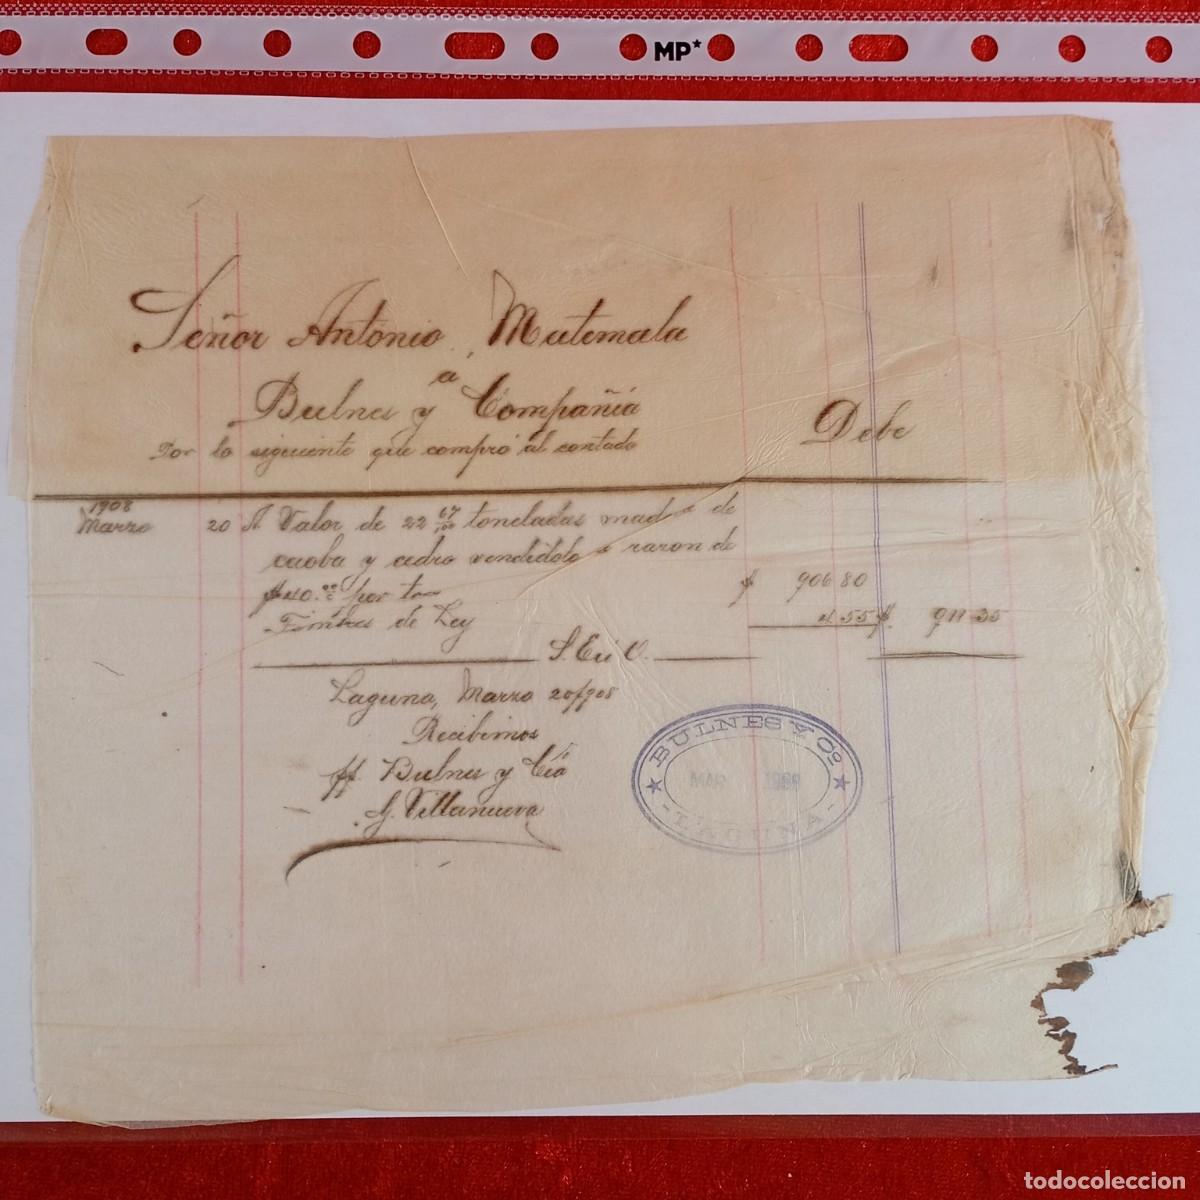 MP*
Señor Antonio Mutemala
a
Bulnes y Compañia
Debe
Por lo siguiente que compró al contado
1908
Marzo 20 A Valor de 22 67/100 toneladas madera de
caoba y cedro vendidole a razon de
$40.00 por ton $ 906 80
Timbres de Ley 4 55 $ 911 35
S. E ú O.
Laguna, Marzo 20/908
Recibimos
pp. Bulnes y Cia
G. Villanueva
BULNES Y Co.
MAR 1908
LAGUNA
todocoleccion